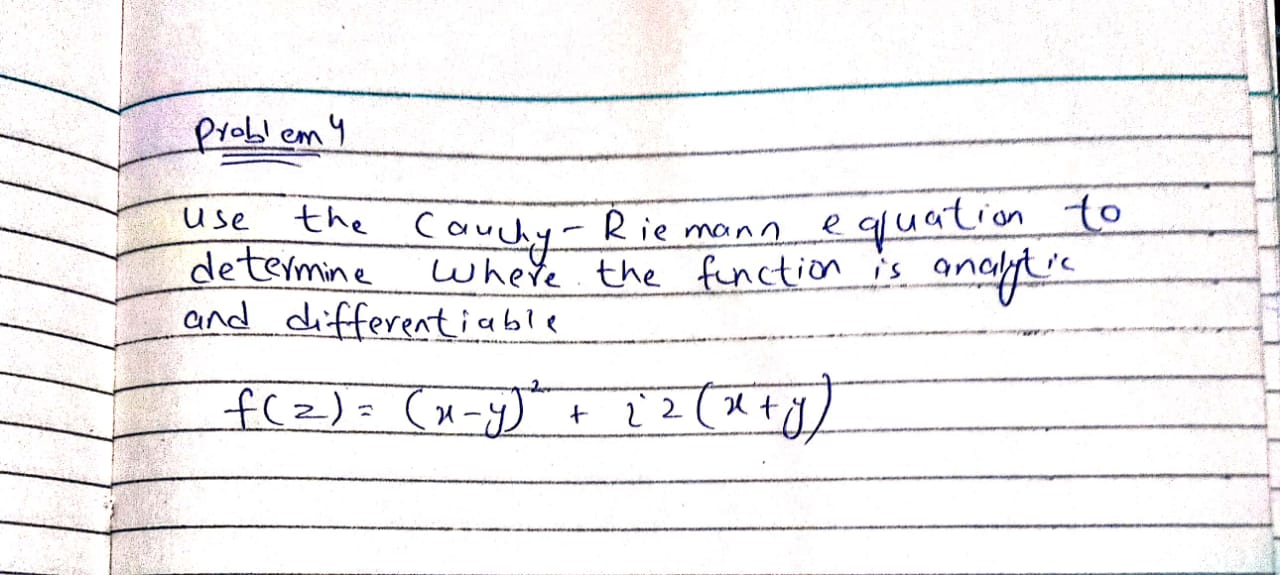 Problem 4
use the Cauchy-Riemann equation to
determine where the function is analytic
and differentiable
f(z) = (x-y)² + i2(x+y)